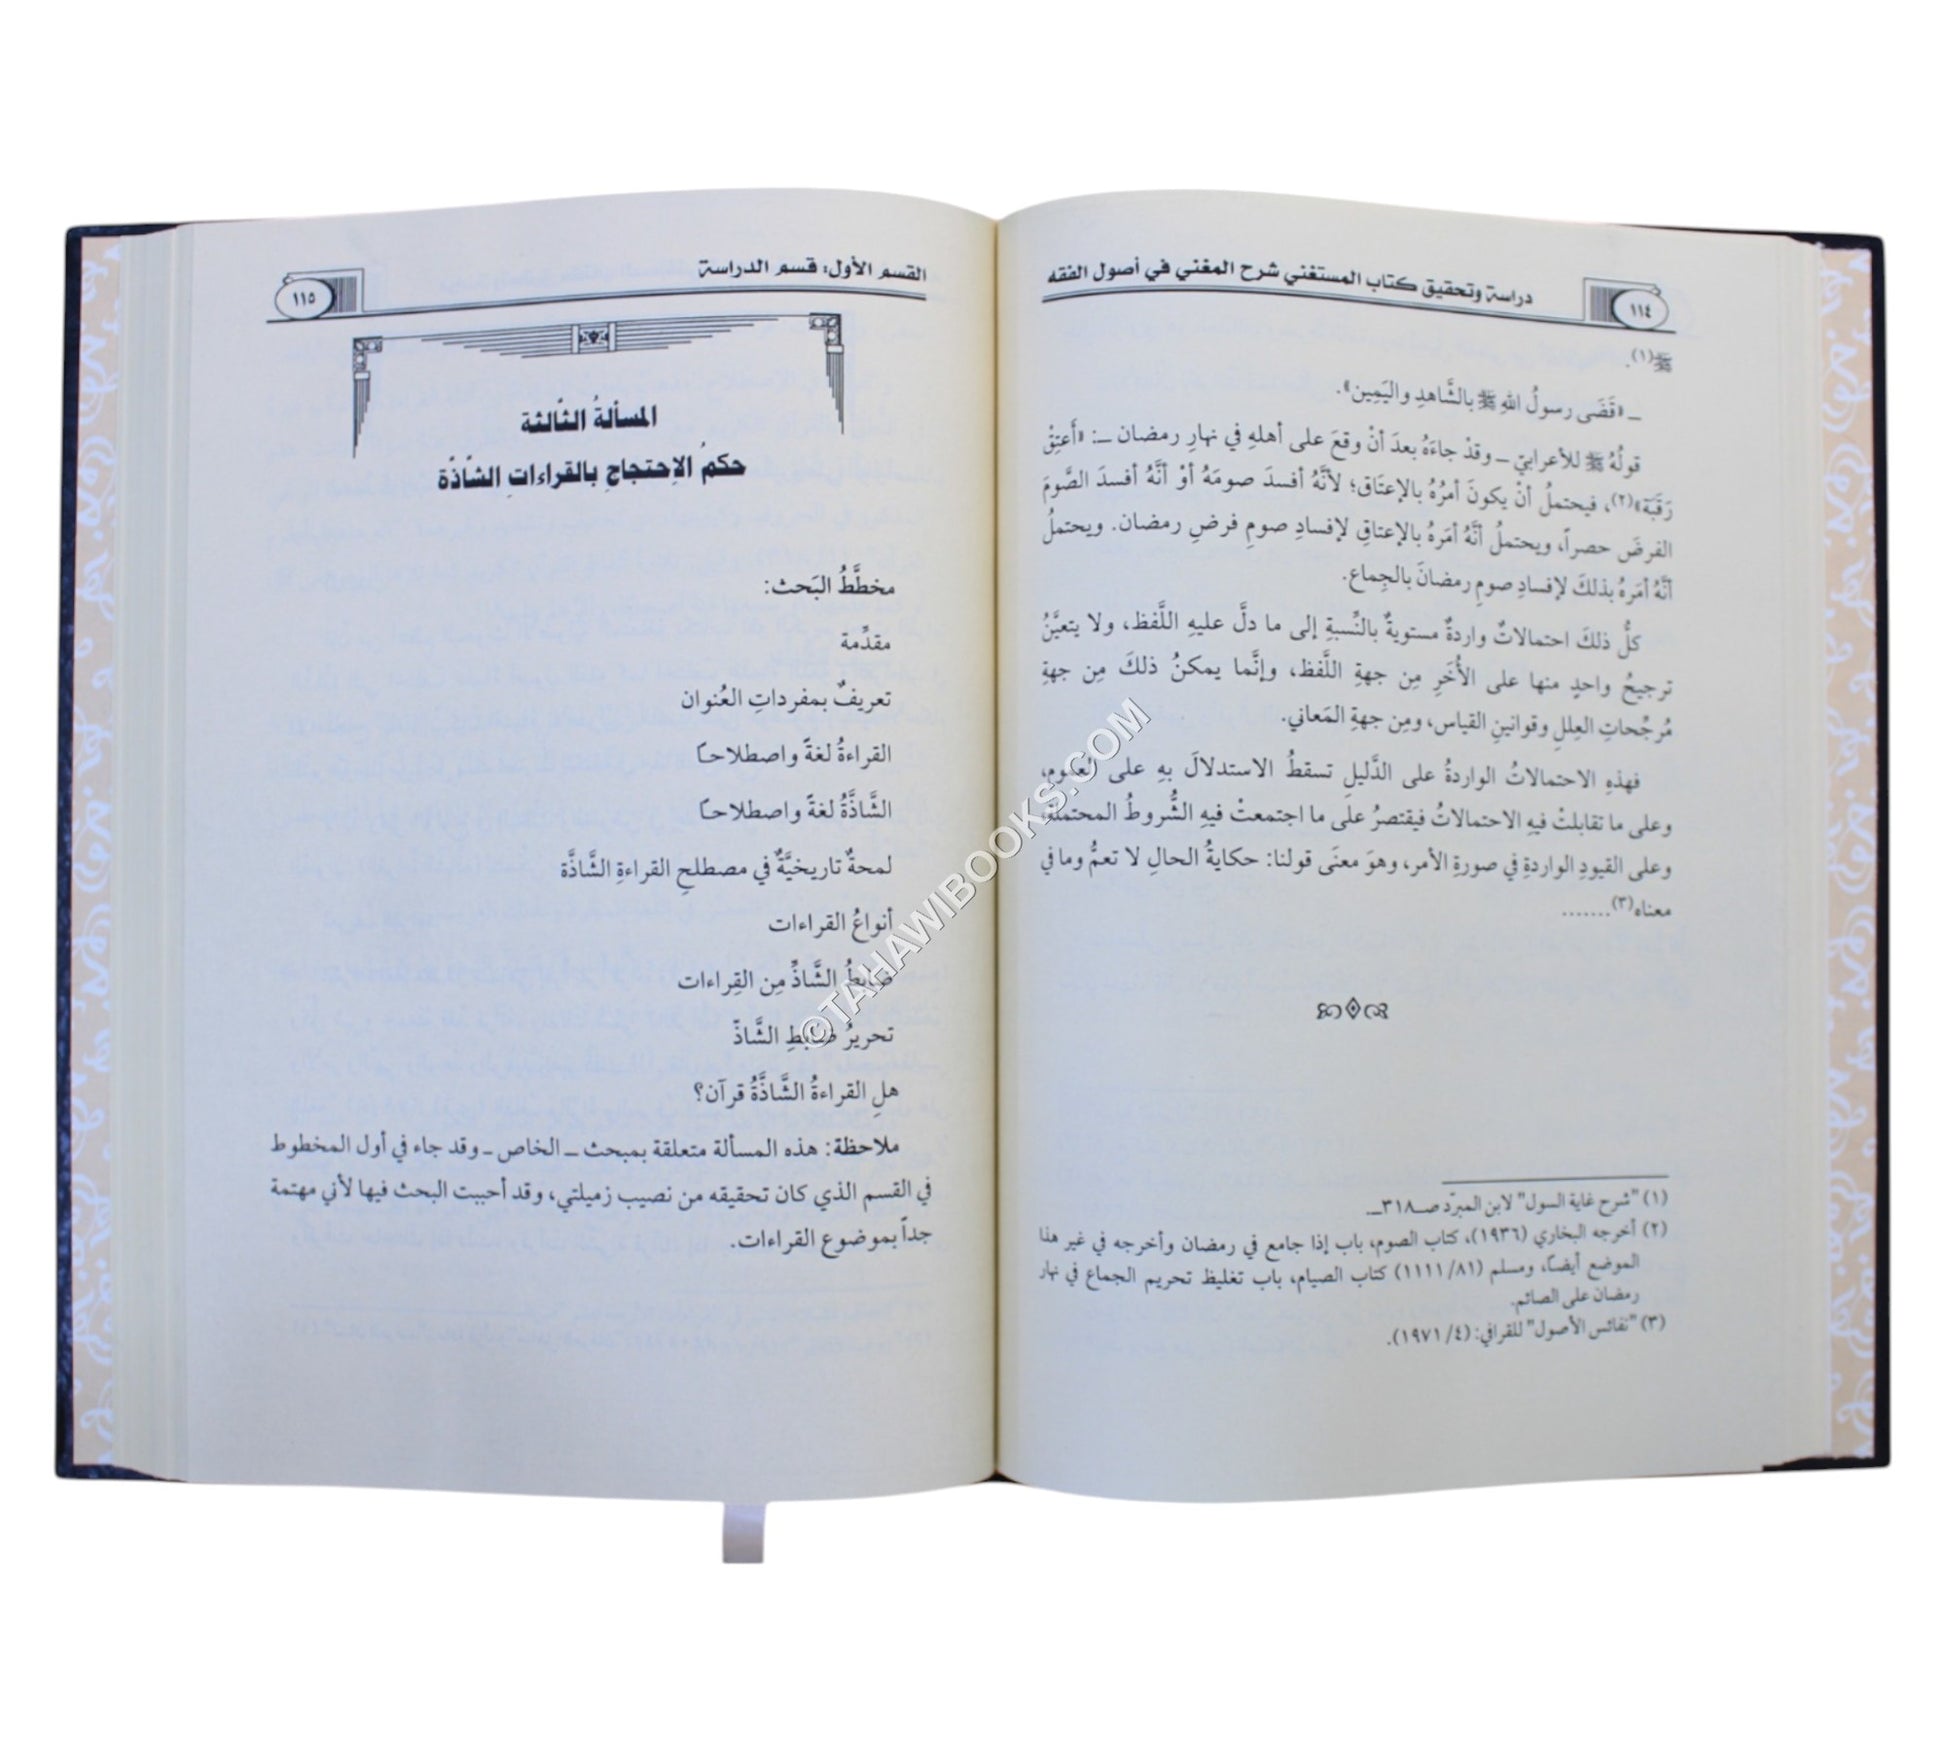 دراسة وتحقيق كتاب المستغني شرح المغني في أصول الفقه
١١٤
ﷺ(١).
ـ «قَضَى رسولُ اللهِ ﷺ بالشَّاهدِ واليَمِين».
قولُهُ ﷺ للأعرابيّ ـ وقدْ جاءَهُ بعدَ أنْ وقعَ على أهلهِ في نهارِ رمضان ـ: «أَعتِقْ
رَقَبَة»(٢)، فيحتملُ أنْ يكونَ أمرُهُ بالإعتَاق؛ لأنَّهُ أفسدَ صومَهُ أوْ أنَّهُ أفسدَ الصَّومَ
الفرضَ حصراً، ويحتملُ أنَّهُ أمَرَهُ بالإعتاقِ لإفسادِ صومِ فرضِ رمضان. ويحتملُ
أنَّهُ أمَرَهُ بذلكَ لإفسادِ صومِ رمضانَ بالجِماع.
كلُّ ذلكَ احتمالاتٌ واردةٌ مستويةٌ بالنِّسبةِ إلى ما دلَّ عليهِ اللَّفظ، ولا يتعيَّنُ
ترجيحُ واحدٍ منها على الأُخَرِ مِن جهةِ اللَّفظ، وإنَّما يمكنُ ذلكَ مِن جهةِ
مُرجِّحاتِ العِللِ وقوانينِ القياس، ومِن جهةِ المَعاني.
فهذهِ الاحتمالاتُ الواردةُ على الدَّليلِ تسقطُ الاستدلالَ بهِ على العُمومِ،
وعلى ما تقابلتْ فيهِ الاحتمالاتُ فيقتصرُ على ما اجتمعتْ فيهِ الشُّروطُ المحتملة،
وعلى القيودِ الواردةِ في صورةِ الأمر، وهوَ معنَى قولنا: حكايةُ الحالِ لا تعمُّ وما في
معناه(٣).......
(١) "شرح غاية السول" لابن المبرّد صـ٣١٨ـ.
(٢) أخرجه البخاري (١٩٣٦)، كتاب الصوم، باب إذا جامع في رمضان وأخرجه في غير هذا
الموضع أيضاً، ومسلم (١١١١/٨١) كتاب الصيام، باب تغليظ تحريم الجماع في نهار
رمضان على الصائم.
(٣) "نفائس الأصول" للقرافي: (١٩٧١/٤).
القسم الأول: قسم الدراسة
١١٥
المسألةُ الثّالثة
حكمُ الاِحتجاجِ بالقراءاتِ الشّاذّة
مخطَّطُ البَحث:
مقدِّمة
تعريفٌ بمفرداتِ العُنوان
القراءةُ لغةً واصطلاحاً
الشَّاذَّةُ لغةً واصطلاحاً
لمحةٌ تاريخيَّةٌ في مصطلحِ القراءةِ الشَّاذَّة
أنواعُ القراءات
ضابطُ الشَّاذِّ مِن القِراءات
تحريرُ ضابطِ الشَّاذّ
هلِ القراءةُ الشَّاذَّةُ قرآن؟
ملاحظة: هذه المسألة متعلقة بمبحث ـ الخاص ـ وقد جاء في أول المخطوط
في القسم الذي كان تحقيقه من نصيب زميلتي، وقد أحببت البحث فيها لأني مهتمة
جداً بموضوع القراءات.
©TAHAWIBOOKS.COM